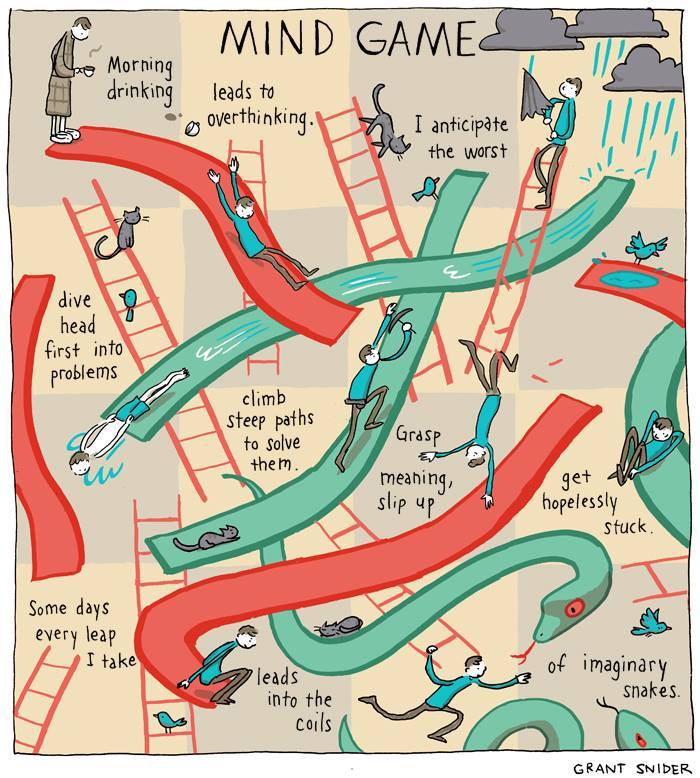 MIND GAME
Morning
drinking
leads to
overthinking.
I anticipate
the worst
dive
head
first into
problems
climb
steep paths
to solve
them.
Grasp
meaning,
slip up
get
hopelessly
stuck.
Some days
every leap
I take
leads
into the
coils
of imaginary
snakes.
GRANT SNIDER